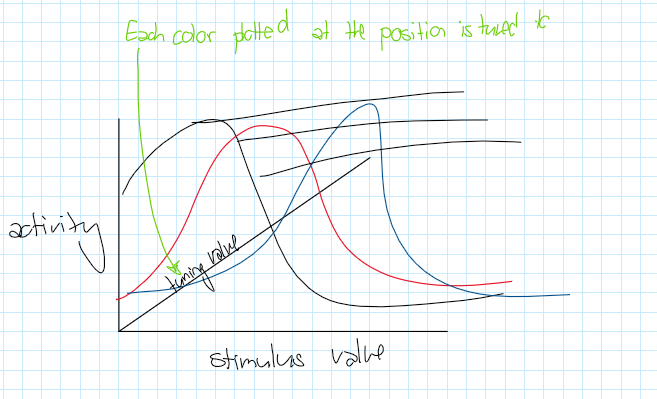 Each color plotted at the position is tuned to
activity
tuning value
stimulus value